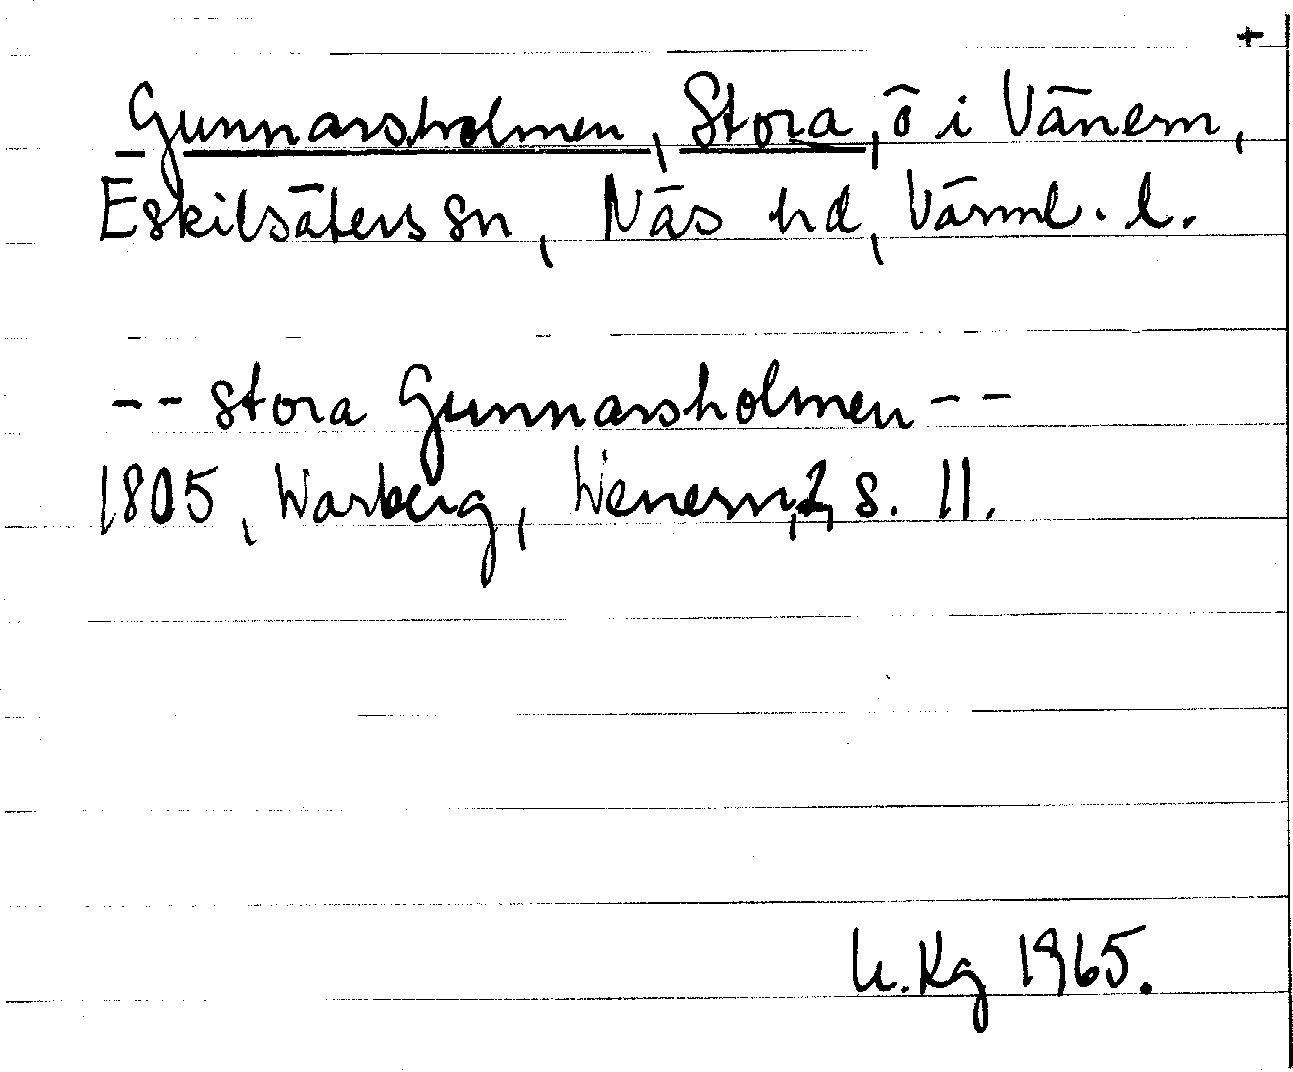 +
Gunnarsholmen, Stora, ö i Vänern,
Eskilsäters sn, Näs hd, Värml. l.
-- stora Gunnarsholmen --
1805, Warberg, Wenern, 2, s. 11.
U. Kg 1965.